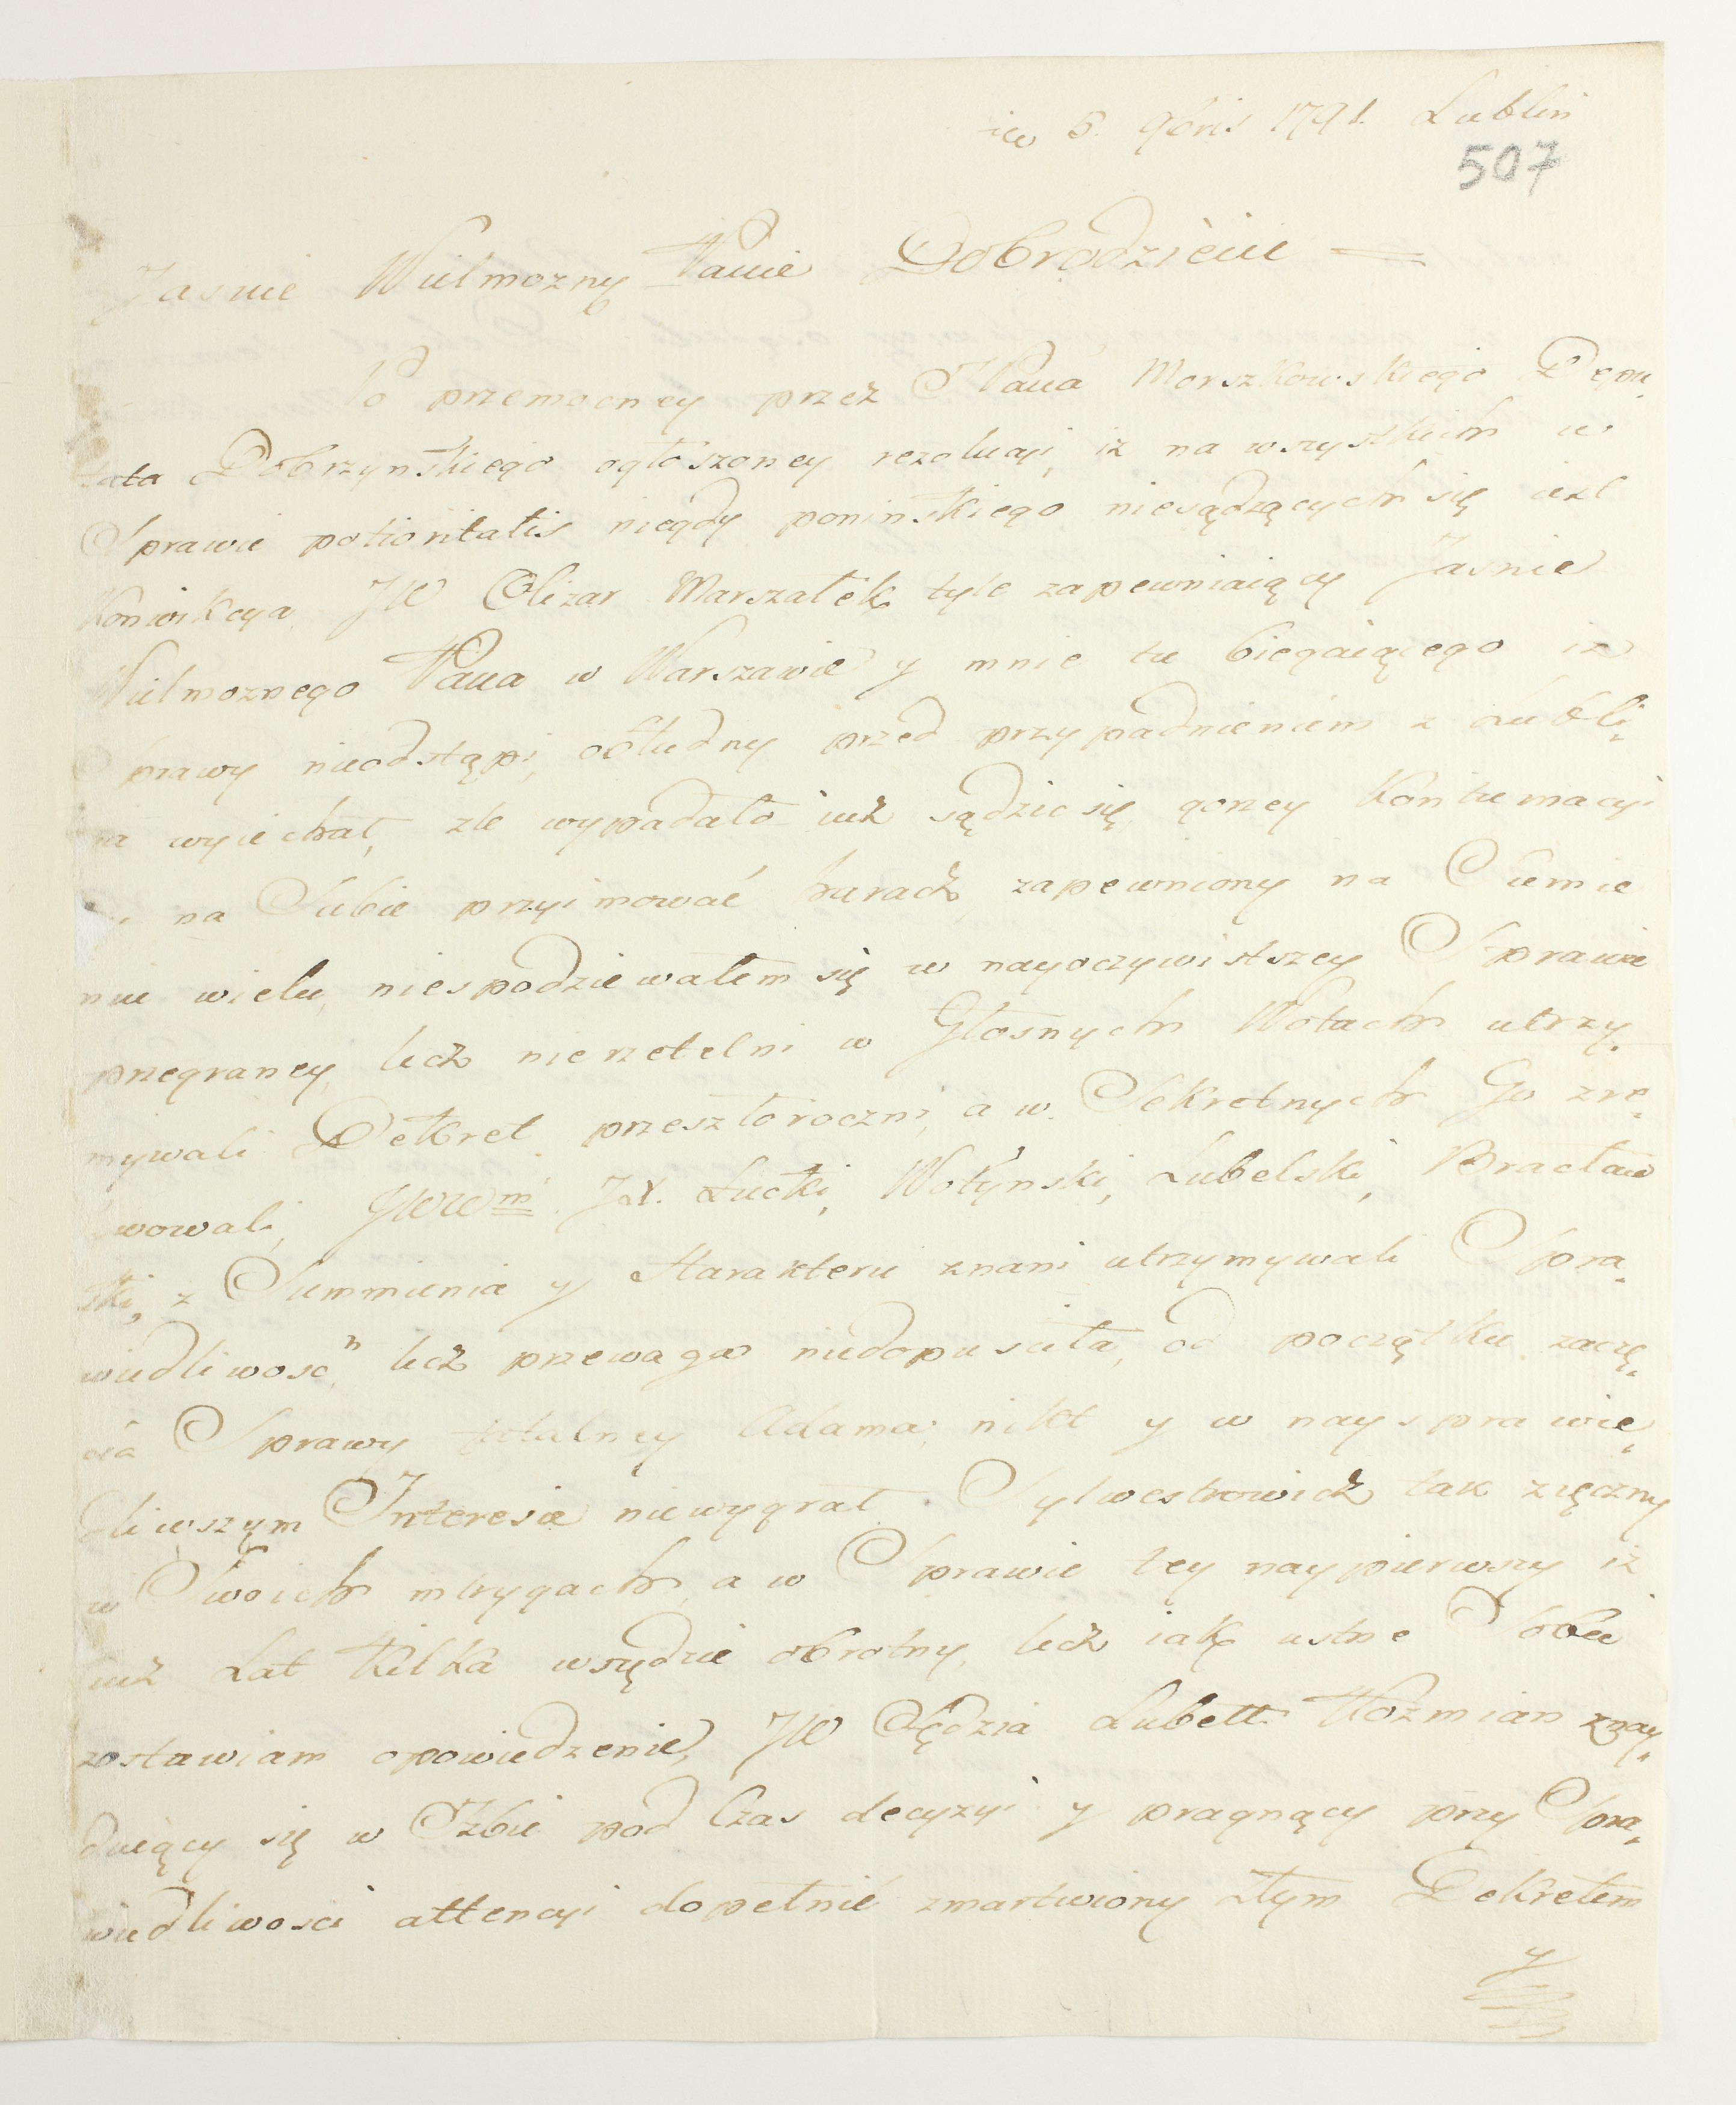 5. 9bris 1791. Lublin
507
Jasnie Wielmozny Panie Dobrodzieiu =
Po przemocney przez JPana Morszkowskiego Depu,
tata Dobrzynskiego ogłoszoney rezolucyi, iz na wszystkich w
Sprawie potioritatis niegdy poninskiego niesądzących się iest
Konwikcya JW Olizar Marszałek tyle zapewniaiący Jasnie
Wielmoznego Pana w Warszawie y mnie tu biegaiącego iz
Sprawy nieodstąpi, obłudny przed przypadnieniem z Lubli,
na wyiechał, zle wypadało iuż sądzic się, gorzey Kontumacyi
na Siebie przyimować haracz, zapewniony na Sumie
niu wielu, niespodziewałem się w nayoczywistszey Sprawie
przegraney, lecz nierzetelni w Głosnych Wotach utrzy,
mywali Dekret przeszłoroczni, a w Sekretnych Go zre,
wowali, JWWm JX. Łucki, Wołynski, Lubelski, Bracław
ski, z Summienia y Harakteru znani utrzymywali Spra,
wiedliwosc, lecz przewaga niedopusciła, od początku zaczę,
cia Sprawy fatalney Adama, nikt y w nayspra wie,
dliwszym Interesie niewygrał. Sylwestrowicz tak zięczny
w Swoich intrygach, a w Sprawie tey naypierwszy iż
iuż Lat Kilka wszędzie obrotny, lecz iak ustne Sobie
zostawiam opowiedzenie, JW Sędzia Lubell Kozmian znay,
duiący się w Izbie pod Czas decyzyi y pragnący przy Spra,
wiedliwosci attencyi dopełnić zmartwiony złym Dekretem
y